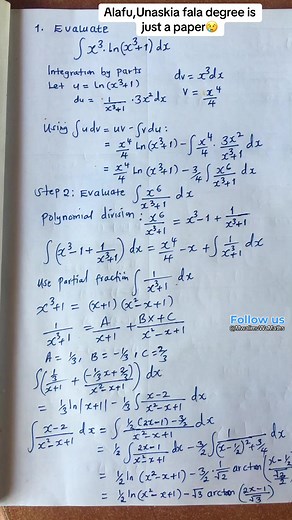 Alafu,Unaskia fala degree is
just a paper😢
1. Evaluate
∫ x³. ln(x³+1) dx
Integration by parts
Let u = ln(x³+1)
dv = x³dx
du = 1/(x³+1) . 3x² dx
v = x⁴/4
Using ∫u dv = uv - ∫v du:
= x⁴/4 ln(x³+1) - ∫ x⁴/4 . 3x²/(x³+1) dx
= x⁴/4 ln(x³+1) - 3/4 ∫ x⁶/(x³+1) dx
Step 2: Evaluate ∫ x⁶/(x³+1) dx
Polynomial division: x⁶/(x³+1) = x³-1 + 1/(x³+1)
∫(x³-1 + 1/(x³+1)) dx = x⁴/4 - x + ∫ 1/(x³+1) dx
Use partial fraction ∫ 1/(x³+1) dx
x³+1 = (x+1)(x²-x+1)
1/(x³+1) = A/(x+1) + (Bx+C)/(x²-x+1)
Follow us
@MwalimuWaMaths
A = 1/3, B = -1/3, C = 2/3
∫(1/3/(x+1) + (-1/3x+2/3)/(x²-x+1)) dx
= 1/3 ln|x+1| - 1/3 ∫ (x-2)/(x²-x+1) dx
∫ (x-2)/(x²-x+1) dx = ∫ (1/2(2x-1) - 3/2)/(x²-x+1) dx
= 1/2 ∫ (2x-1)/(x²-x+1) dx - 3/2 ∫ 1/((x-1/2)²+3/4) dx
= 1/2 ln(x²-x+1) - 3/2 . 1/(√3/2) arctan((x-1/2)/(√3/2))
= 1/2 ln(x²-x+1) - √3 arctan((2x-1)/√3)